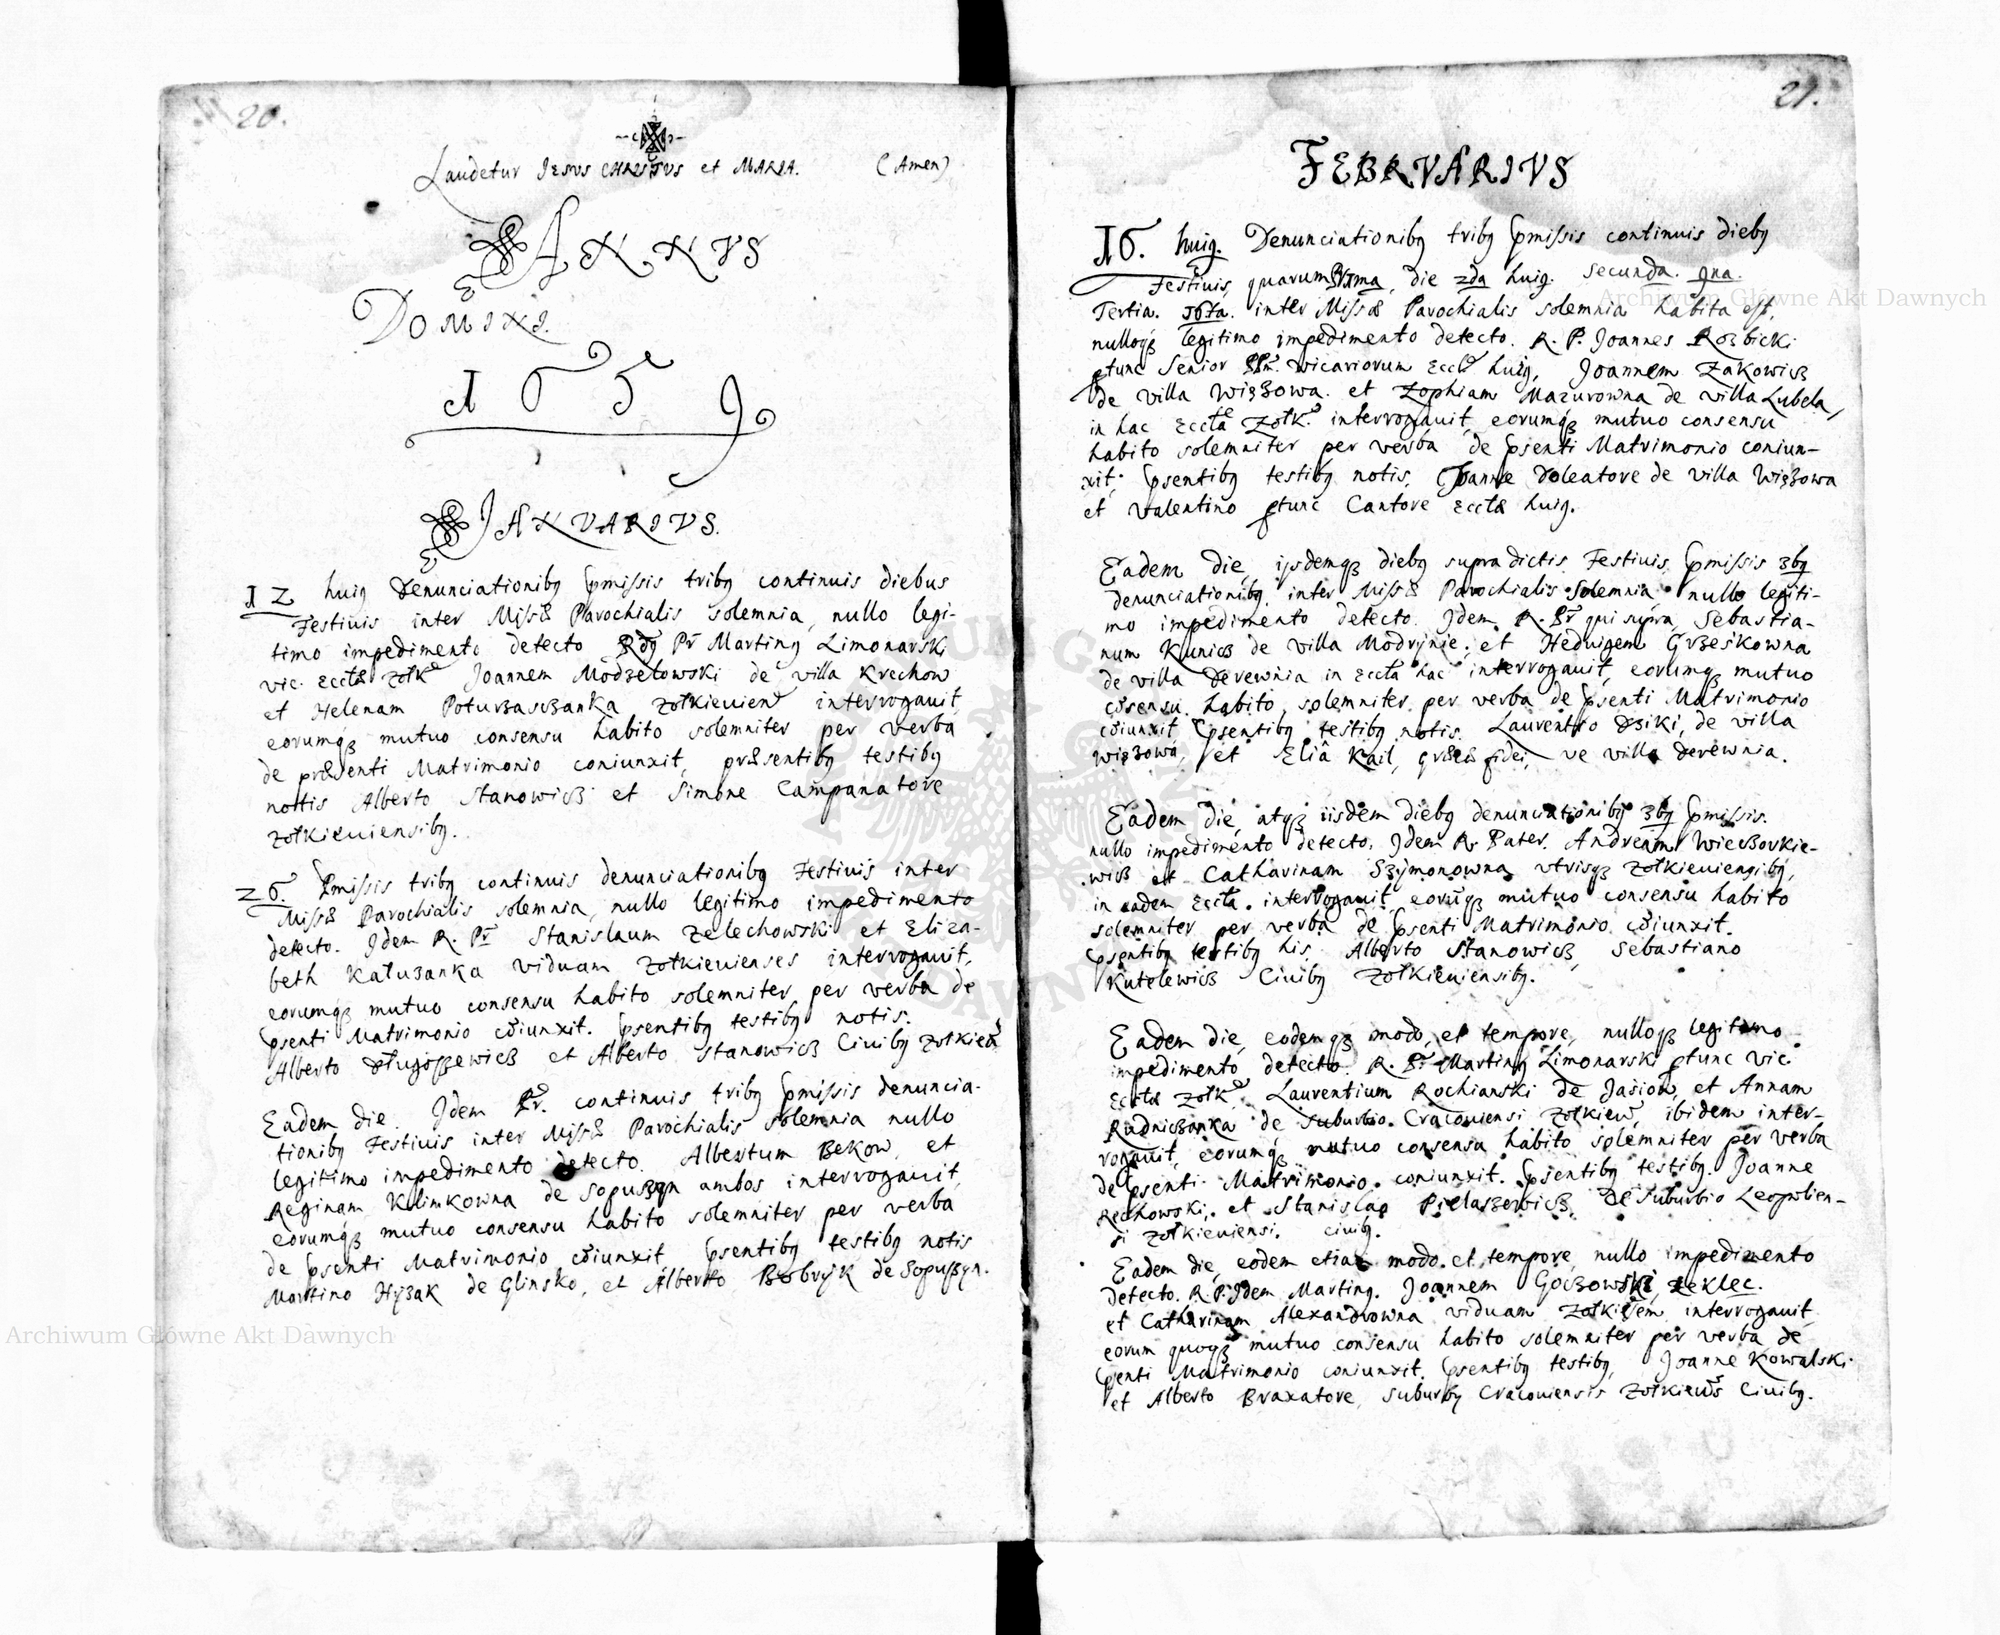 20.
Laudetur Jesus CHRISTUS et MARIA. (Amen)
ANNVS
DOMINI.
1659
JANVARIVS.
12 huiq Denunciationibq pmissis tribq continuis diebus
Festiuis inter Missæ Parochialis solemnia, nullo legi-
timo impedimento detecto Rdq Pr Martinq Limonarski
vic. Eccłæ Zołk Joannem Modzelowski de villa Krechow
et Helenam Poturzasczanka Zołkieuien interrogauit
eorumqȝ mutuo consensu habito solemniter per verba
de præsenti Matrimonio coniunxit, præsentibq testibq
notis Alberto Stanowicz et Simone Campanatore
Zołkieuiensibq.
26. Pmissis tribq continuis denunciationibq Festiuis inter
Missæ Parochialis solemnia, nullo legitimo impedimento
detecto. Jdem R. Pr Stanislaum Zelechowski et Eliza-
beth Kałuzanka viduam Zołkieuienses interrogauit,
eorumqȝ mutuo consensu habito solemniter per verba de
psenti Matrimonio cōiunxit. psentibq testibq notis.
Alberto Długoszewicz et Alberto Stanowicz Ciuibq Zołkieū
Eadem die. Jdem Pr. continuis tribq pmissis denuncia-
tionibq Festiuis inter Missæ Parochialis solemnia nullo
legitimo impedimento detecto. Albertum Bekow, et
Reginam Klimkowna de Sopuszyn ambos interrogauit,
eorumqȝ mutuo consensu habito solemniter per verba
de psenti Matrimonio cōiunxit, psentibq testibq notis
Martino Hyzak de Glinsko, et Alberto Bobryk de Sopuszyn.
21.
FEBRVARIVS
16. huiq. Denunciationibq tribq pmissis continuis diebq
Festiuis, quarum Prima, die 2da huiq. Secunda. 9na.
Tertia. 16ta. inter Missæ Parochialis solemnia habita est,
nulloqȝ legitimo impedimento detecto. R. P. Joannes Rozbicki
ptunc Senior Vicariorum Eccłæ huiq, Joannem Zakowicz
de villa Wiȩzowa. et Zophiam Mazurowna de villa Lubela,
in hac Eccła Zołk. interrogauit, eorumqȝ mutuo consensu
habito solemniter per verba de psenti Matrimonio coniun-
xit: psentibq testibq notis, Joanne Doleatore de villa Wiȩzowa
et Valentino ptunc Cantore Eccłæ huiq.
Eadem die, ijsdemqȝ diebq supradictis Festiuis pmissis 3bq
denunciationibq, inter Missæ Parochialis Solemnia nullo legiti-
mo impedimento detecto. Jdem R. Pr qui supra, Sebastia-
num Kunicz de villa Modrynie. et Hedvigem Grzeskowna
de villa Derewnia in Eccła hac interrogauit, eorumqȝ mutuo
cōsensu habito solemniter per verba de psenti Matrimonio
cōiunxit psentibq testibq notis. Laurentio Dziki, de villa
Wiȩzowa, et Eliâ Kail, græcæ fidei, ve villa Derewnia.
Eadem die, atqȝ iisdem diebq denunciationibq 3bq pmissis.
nullo impedimento detecto. Jdem R. Pater. Andream Wierzovkie-
wicz et Catharinam Szymonowna vtrisqȝ Zołkieuiensibq,
in eadem Eccła. interrogauit eorūqȝ mutuo consensu habito
solemniter per verba de psenti Matrimonio cōiunxit.
psentibq testibq his. Alberto Stanowicz, Sebastiano
Kutelewicz Ciuibq Zołkieuiensibq.
Eadem die, eodemqȝ modo, et tempore, nulloqȝ legitimo
impedimento detecto. R. Pr Martinq Limonarski ptunc vic.
Eccłæ Zołk, Laurentium Rochianski de Jasiow, et Annam
Rudniczanka de Suburbio Cracouiensi Zołkiew, ibidem inter-
rogauit, eorumqȝ mutuo consensu habito solemniter per verba
de psenti Matrimonio. coniunxit. psentibq testibq. Joanne
Rechowski. et Stanislao Pielaszewicz de Suburbio Leopolien-
si Zołkieuiensi. ciuibq.
Eadem die, eodem etiam modo et tempore, nullo impedimento
detecto. R. P. Jdem Martinq. Joannem Goczowski, Zeklec.
et Catharinam Alexandrowna viduam Zołkiem interrogauit
eorum quoqȝ mutuo consensu habito solemniter per verba de
psenti Matrimonio coniunxit. psentibq testibq, Joanne Kowalski
et Alberto Braxatore, Suburby Cracouiensis Zołkieus Ciuibq.
Archiwum Główne Akt Dawnych
Archiwum Główne Akt Dawnych